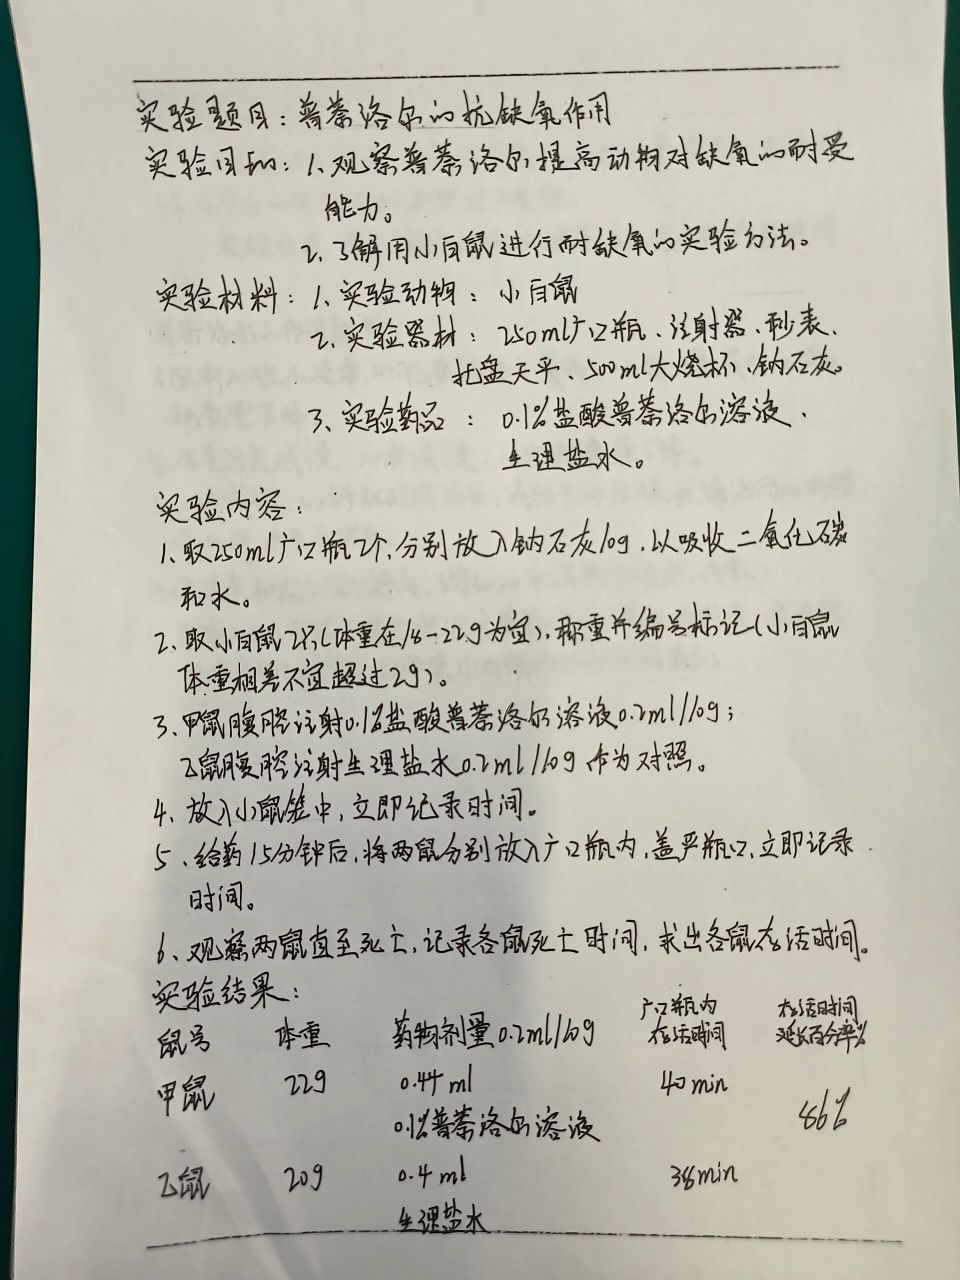 实验题目：普萘洛尔的抗缺氧作用
实验目的：1、观察普萘洛尔提高动物对缺氧的耐受
能力。
2、了解用小白鼠进行耐缺氧的实验方法。
实验材料：1、实验动物：小白鼠
2、实验器材：250ml广口瓶、注射器、秒表、
托盘天平、500ml大烧杯、钠石灰。
3、实验药品：0.1%盐酸普萘洛尔溶液、
生理盐水。
实验内容：
1、取250ml广口瓶2个，分别放入钠石灰10g，以吸收二氧化碳
和水。
2、取小白鼠2只（体重在18-22g为宜），称重并编号标记（小白鼠
体重相差不宜超过2g）。
3、甲鼠腹腔注射0.1%盐酸普萘洛尔溶液0.2ml/10g；
乙鼠腹腔注射生理盐水0.2ml/10g作为对照。
4、放入小鼠笼中，立即记录时间。
5、给药15分钟后，将两鼠分别放入广口瓶内，盖严瓶口，立即记录
时间。
6、观察两鼠直至死亡，记录各鼠死亡时间，求出各鼠存活时间。
实验结果：
鼠号 体重 药物剂量0.2ml/10g 广口瓶内存活时间 存活时间延长百分率%
甲鼠 22g 0.44ml 40min
0.1%普萘洛尔溶液 86%
乙鼠 20g 0.4ml 38min
生理盐水